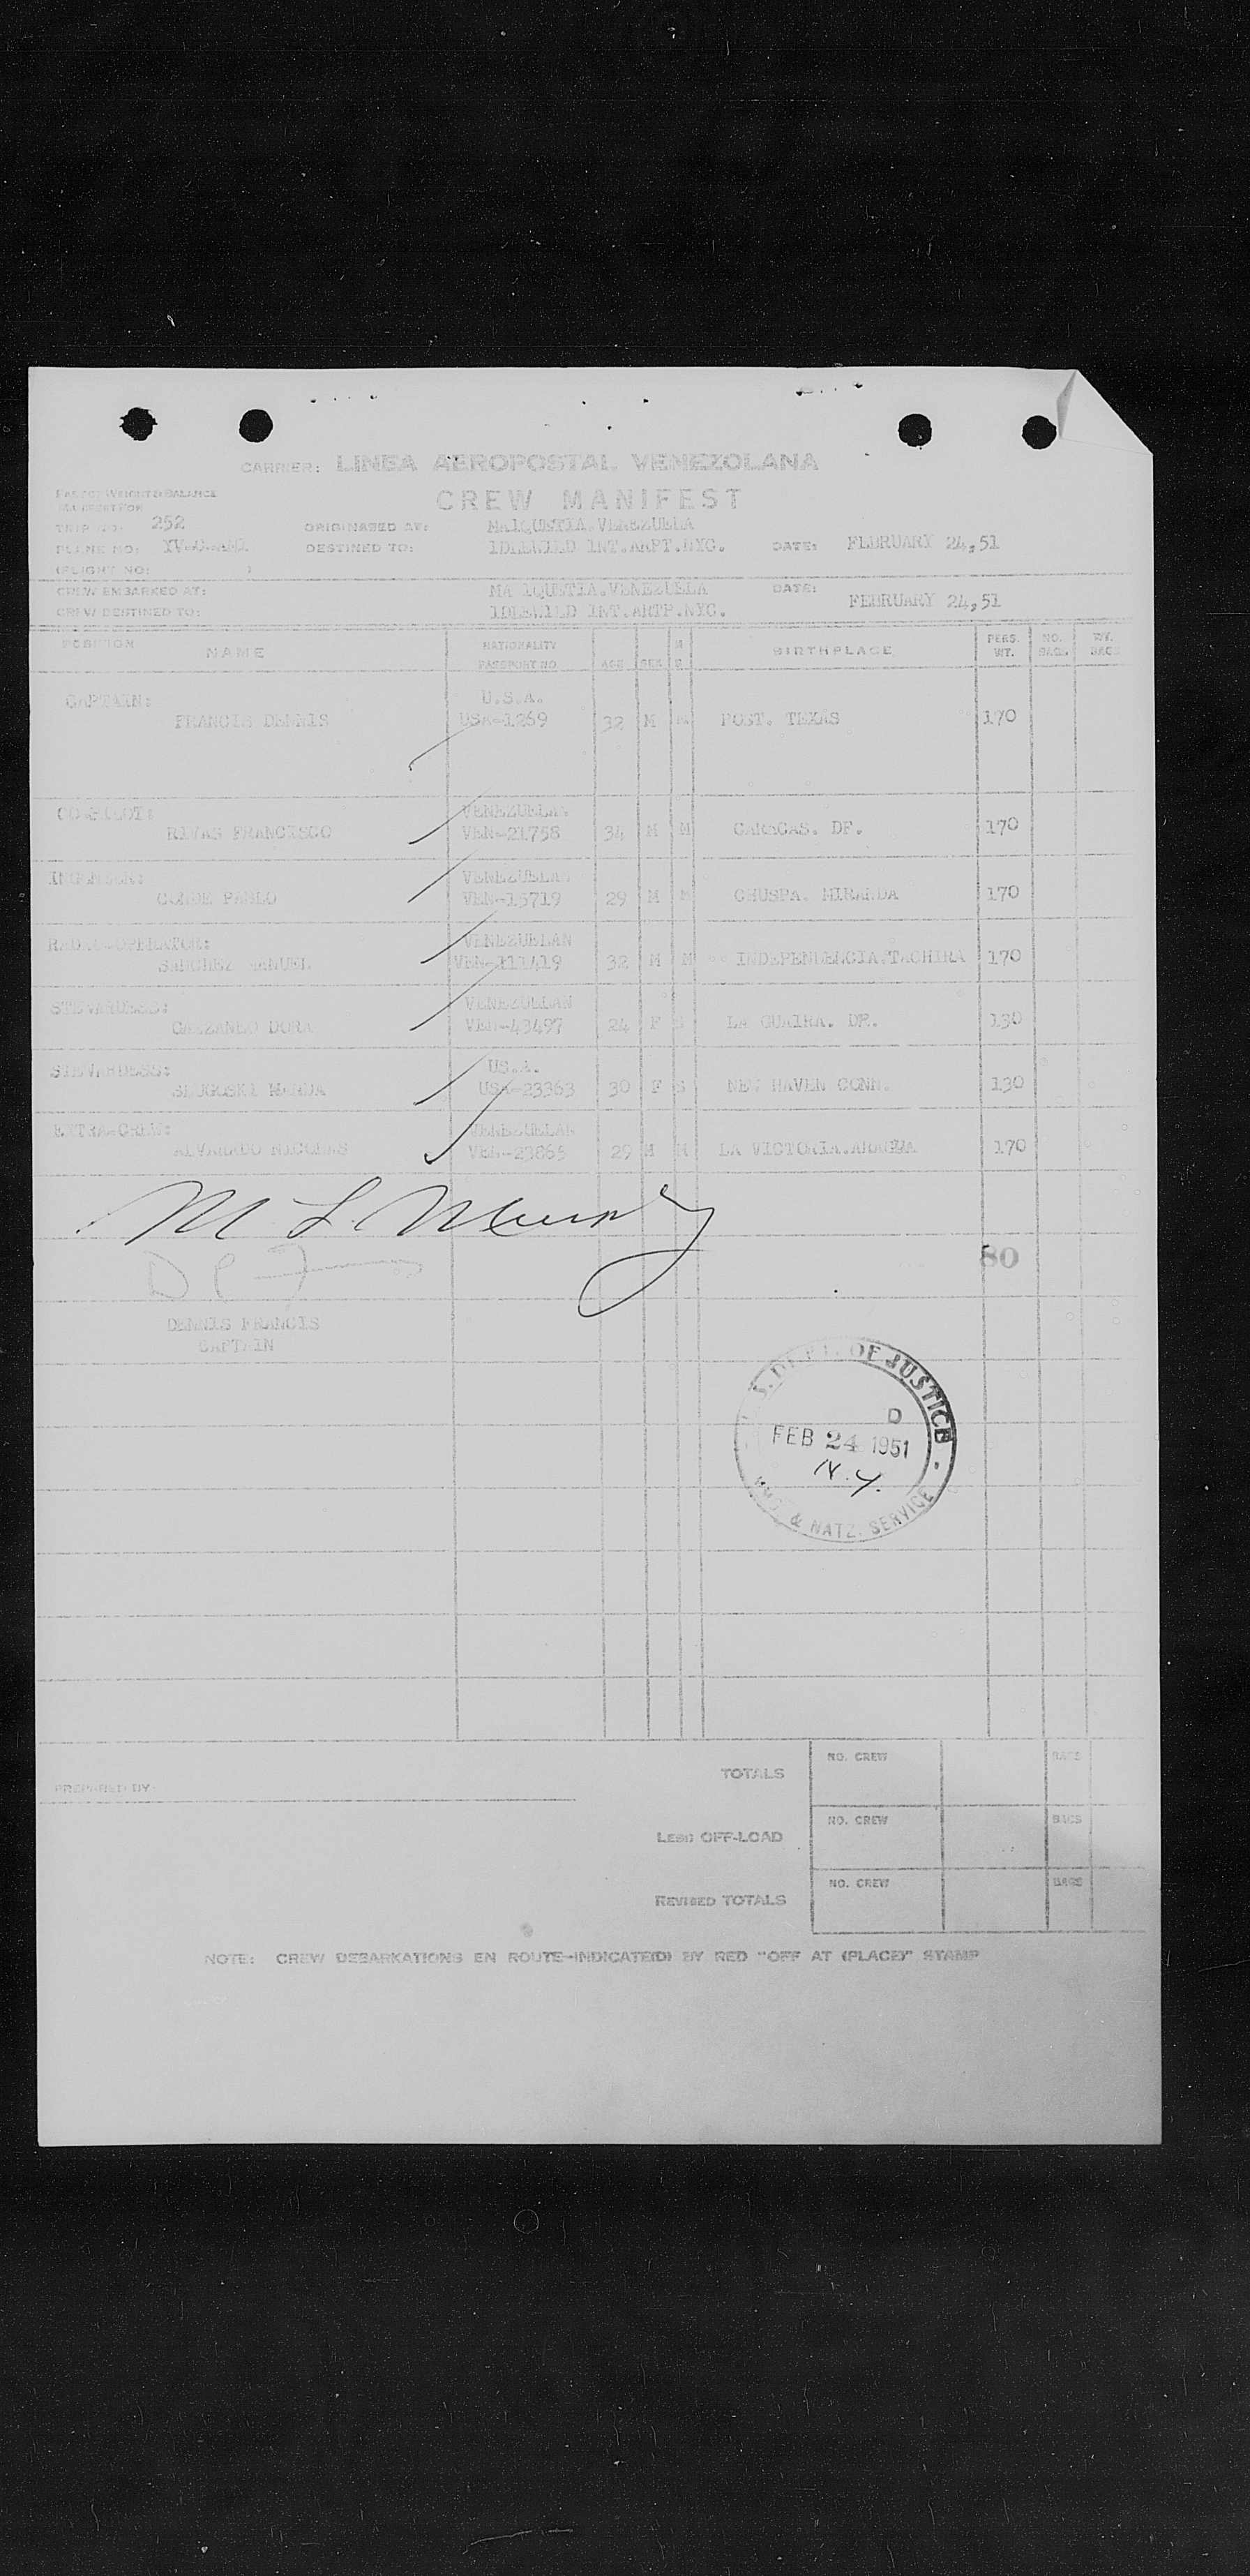 CARRIER: LINEA AEROPOSTAL VENEZOLANA
CREW MANIFEST
TRIP NO: 252 ORIGINATED AT: MAIQUETIA.VENEZUELA
PLANE NO: DESTINED TO: IDLEWILD INT.ARPT.NYC. DATE: FEBRUARY 24,51
(FLIGHT NO: )
CREW EMBARKED AT: MAIQUETIA.VENEZUELA DATE: FEBRUARY 24,51
CREW DESTINED TO: IDLEWILD INT.ARTP.NYC.
POSITION NAME NATIONALITY PASSPORT NO AGE SEX M S BIRTHPLACE PERS. WT. NO. BAGS. WT. BAGS
CAPTAIN: U.S.A.
FRANCIS DENNIS USA-1269 32 M M POST. TEXAS 170
CO-PILOT: VENEZUELAN
RIVAS FRANCISCO VEN-21758 34 M M CARACAS. DF. 170
VENEZUELAN
CONDE PABLO VEN-15719 29 M M CHUSPA. MIRANDA 170
RADIO-OPERATOR: VENEZUELAN
SANCHEZ MANUEL VEN-111419 32 M M INDEPENDENCIA.TACHIRA 170
STEWARDESS: VENEZUELAN
DORA VEN-43497 24 F S LA GUAIRA. DF. 130
STEWARDESS: US.A.
SLUGOSKI WANDA USA-23363 30 F S NEW HAVEN CONN. 130
EXTRA-CREW: VENEZUELAN
ALVARADO NICOLAS VEN-23865 29 M M LA VICTORIA.ARAGUA 170
M L Murphy
80
DENNIS FRANCIS
CAPTAIN
U.S. DEPT. OF JUSTICE
D
FEB 24 1951
N.Y.
IMM. & NATZ. SERVICE
TOTALS NO. CREW BAGS
PREPARED BY:
LESS OFF-LOAD NO. CREW BAGS
REVISED TOTALS NO. CREW BAGS
NOTE: CREW DEBARKATIONS EN ROUTE-INDICATE(D) BY RED "OFF AT (PLACE)" STAMP